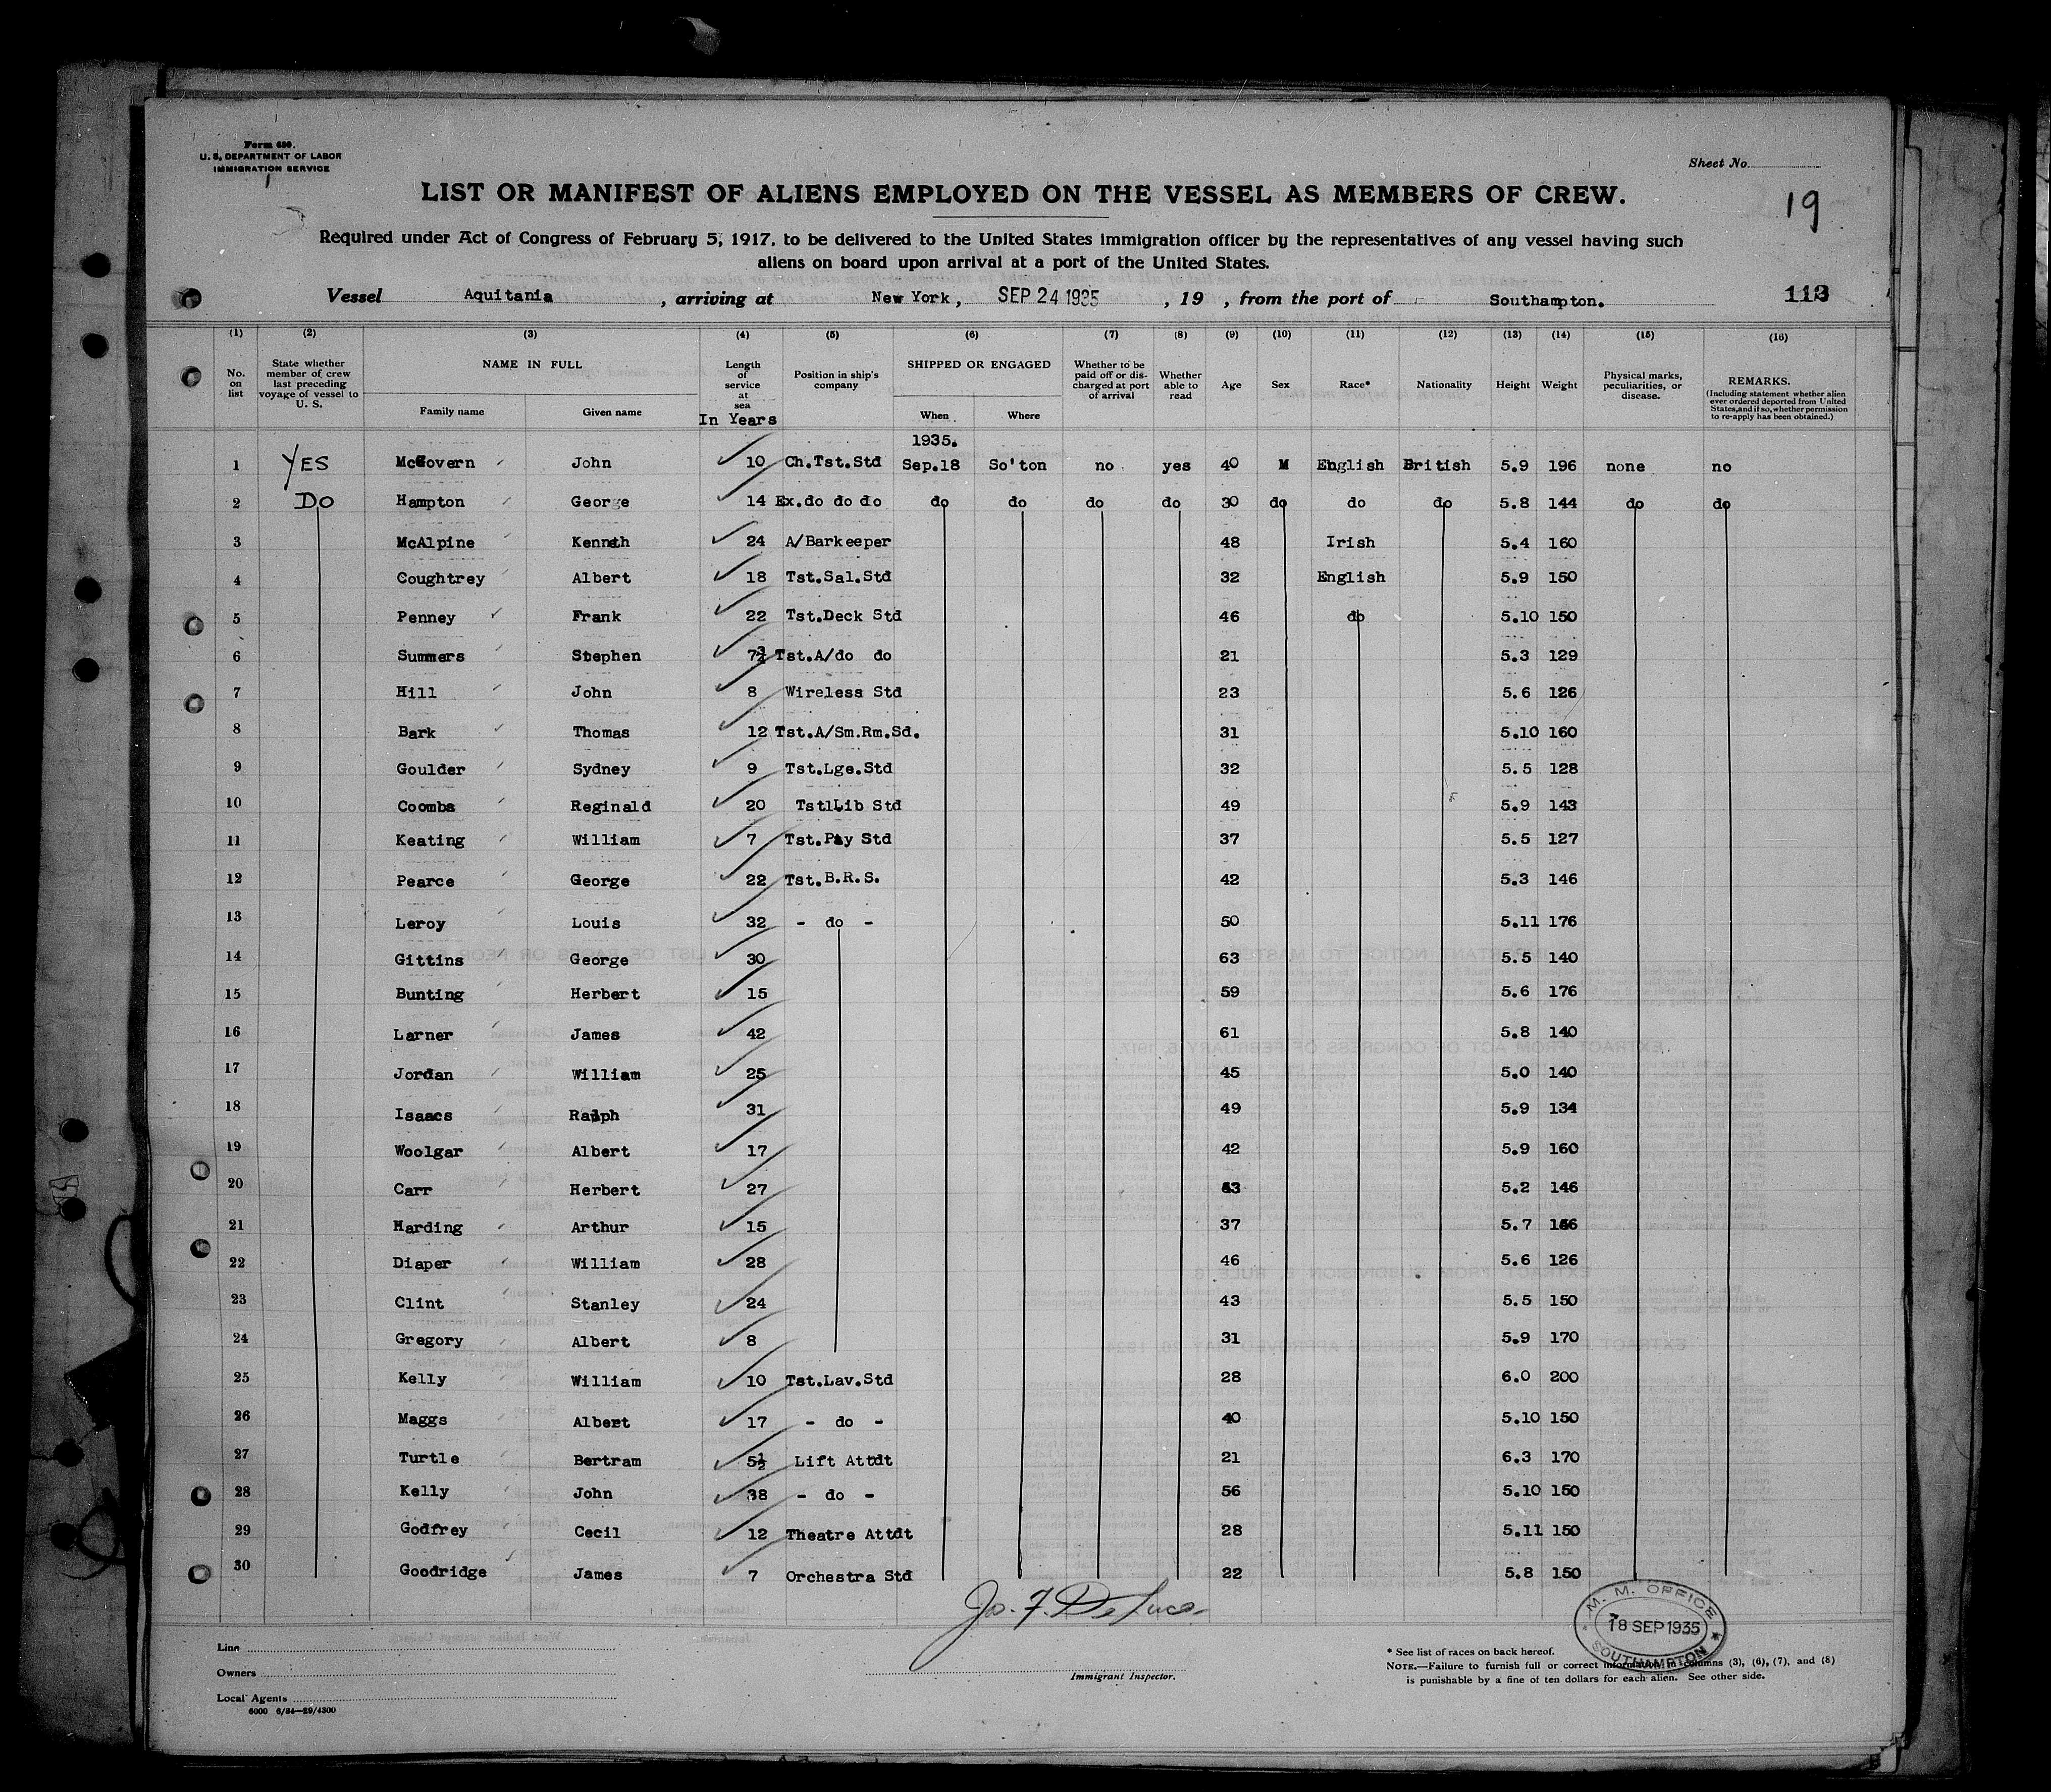 Form 680.
U. S. DEPARTMENT OF LABOR
IMMIGRATION SERVICE
Sheet No.
LIST OR MANIFEST OF ALIENS EMPLOYED ON THE VESSEL AS MEMBERS OF CREW.
19
Required under Act of Congress of February 5, 1917, to be delivered to the United States immigration officer by the representatives of any vessel having such
aliens on board upon arrival at a port of the United States.
Vessel Aquitania , arriving at New York, SEP 24 1935 , 19 , from the port of Southampton. 113
(1) (2) (3) (4) (5) (6) (7) (8) (9) (10) (11) (12) (13) (14) (15) (16)
No. on list
State whether member of crew last preceding voyage of vessel to U. S.
NAME IN FULL
Family name Given name
Length of service at sea
In Years
Position in ship's company
SHIPPED OR ENGAGED
When Where
Whether to be paid off or discharged at port of arrival
Whether able to read
Age
Sex
Race*
Nationality
Height
Weight
Physical marks, peculiarities, or disease.
REMARKS.
(Including statement whether alien ever ordered deported from United States, and if so, whether permission to re-apply has been obtained.)
1935.
1 YES McGovern John 10 Ch.Tst.Std Sep.18 So'ton no yes 40 M English British 5.9 196 none no
2 DO Hampton George 14 Ex.do do do do do do do 30 do do do 5.8 144 do do
3 McAlpine Kenneth 24 A/Barkeeper 48 Irish 5.4 160
4 Coughtrey Albert 18 Tst.Sal.Std 32 English 5.9 150
5 Penney Frank 22 Tst.Deck Std 46 do 5.10 150
6 Summers Stephen 7¾ Tst.A/do do 21 5.3 129
7 Hill John 8 Wireless Std 23 5.6 126
8 Bark Thomas 12 Tst.A/Sm.Rm.Sd. 31 5.10 160
9 Goulder Sydney 9 Tst.Lge.Std 32 5.5 128
10 Coombs Reginald 20 TstlLib Std 49 5.9 143
11 Keating William 7 Tst.Pay Std 37 5.5 127
12 Pearce George 22 Tst.B.R.S. 42 5.3 146
13 Leroy Louis 32 - do - 50 5.11 176
14 Gittins George 30 63 5.5 140
15 Bunting Herbert 15 59 5.6 176
16 Larner James 42 61 5.8 140
17 Jordan William 25 45 5.0 140
18 Isaacs Ralph 31 49 5.9 134
19 Woolgar Albert 17 42 5.9 160
20 Carr Herbert 27 5.2 146
21 Harding Arthur 15 37 5.7
22 Diaper William 28 46 5.6 126
23 Clint Stanley 24 43 5.5 150
24 Gregory Albert 8 31 5.9 170
25 Kelly William 10 Tst.Lav.Std 28 6.0 200
26 Maggs Albert 17 - do - 40 5.10 150
27 Turtle Bertram 5½ Lift Attdt 21 6.3 170
28 Kelly John 38 - do - 56 5.10 150
29 Godfrey Cecil 12 Theatre Attdt 28 5.11 150
30 Goodridge James 7 Orchestra Std 22 5.8 150
Jo. F. De Luca
Immigrant Inspector.
Line
Owners
Local Agents
6000 6/34—29/4300
M. M. OFFICE
18 SEP 1935
SOUTHAMPTON
* See list of races on back hereof.
NOTE.—Failure to furnish full or correct information in columns (3), (6), (7), and (8)
is punishable by a fine of ten dollars for each alien. See other side.